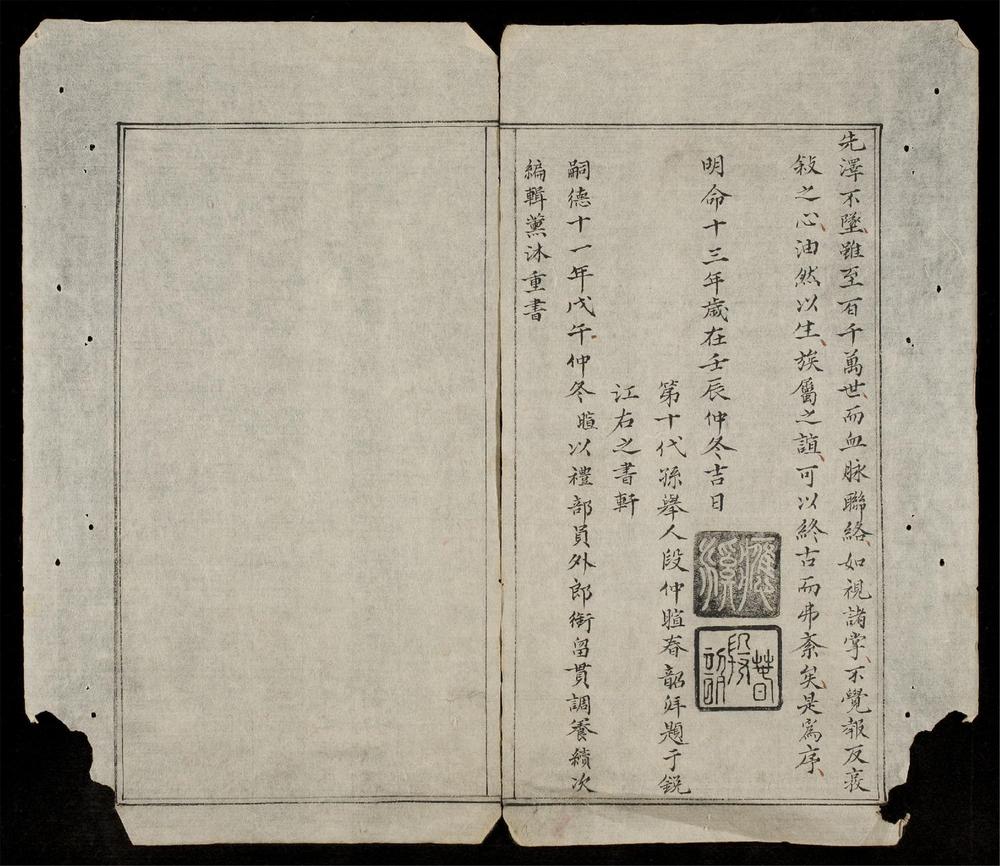 先澤不墜雖至百千萬世而血脉聯絡如視諸掌不覺報反哀
敍之心油然以生族屬之誼可以終古而弗紊矣是爲序
明命十三年歲在壬辰仲冬吉日
第十代孫舉人段仲暄春韶拜題于銳
江右之書軒
嗣德十一年戊午仲冬暄以禮部員外郎銜留貫調養續次
編輯薰沐重書